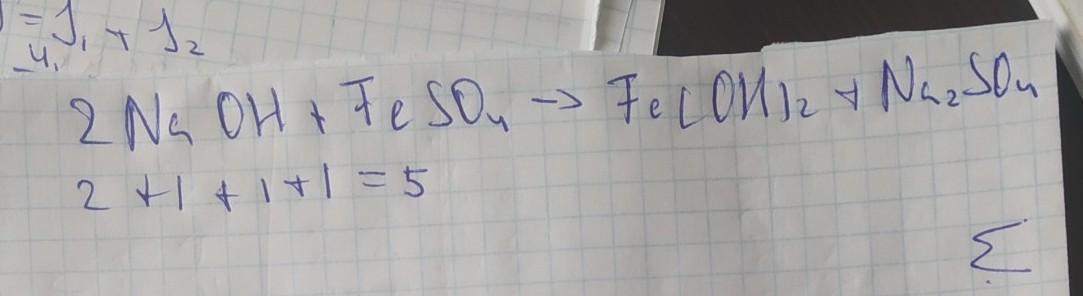 = J₁ + J₂
4,
2NaOH + FeSO₄ -> Fe(OH)₂ + Na₂SO₄
2 + 1 + 1 + 1 = 5
Σ